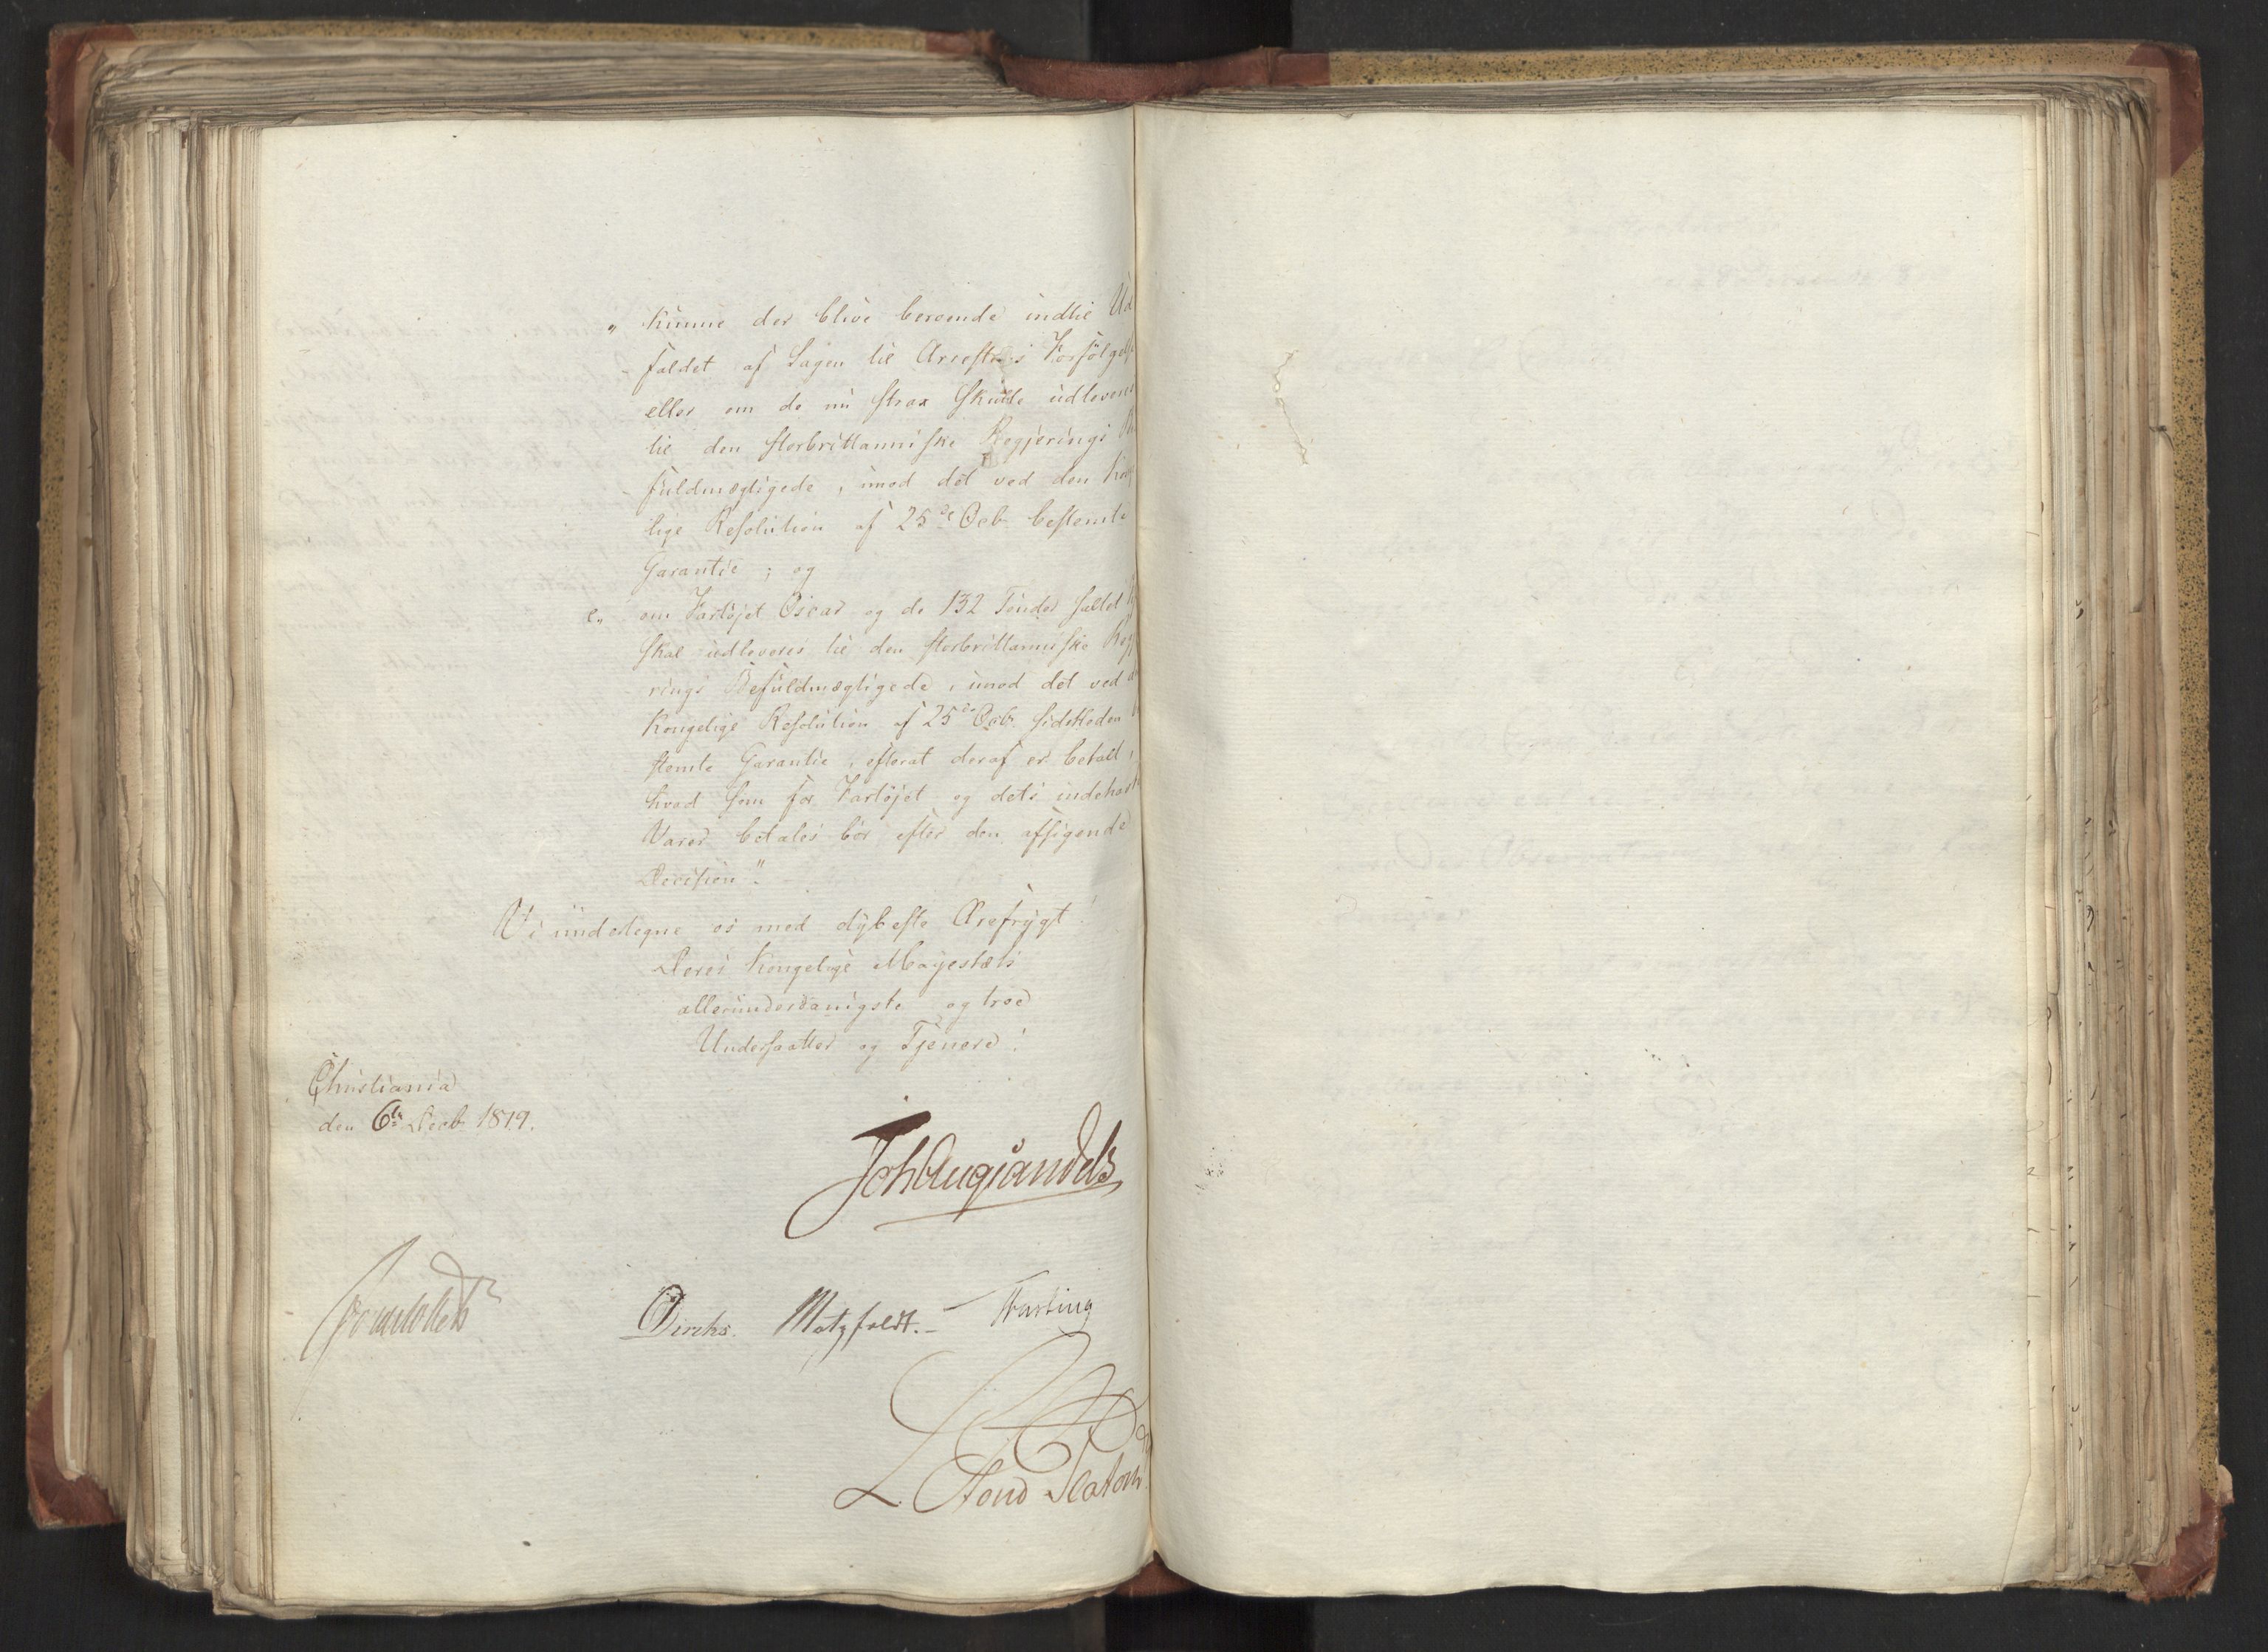 " kunne der blive beroende indtil Ud
faldet af Sagen til Arrestens Forfölgelse
eller om de nu strax skulle udleveres
til den storbrittanniske Regjerings Be
fuldmægtigede, imod det ved den Konge
lige Resolution af 25de Octb bestemte
Garantie; og
e,, om Fartöjet Oscar og de 132 Tönder saltet
skal udleveres til den storbrittanniske Regje
rings Befuldmægtigede, imod det ved
Kongelige Resolution af 25de Octb. sidstleden be
stemte Garantie, efterat deraf er betalt,
hvad som for Fartöjet og dets indehavte
Varer betales bör efter den afsigende
Decision".
Vi undertegne os med dybeste Ærefrygt!
Deres Kongelige Majestæts
allerunderdanigste og troe
Undersaatter og Tjenere!
Christiania
den 6te Decb 1819.
JohAugSandels
Sommerhielm
Diriks. Motzfeldt.- Fasting
L. Stoud Platou